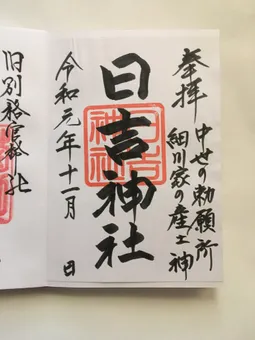 奉拝
中世の勅願所
細川家の産土神
日吉神社
令和元年十一月 日
旧別格官幣社